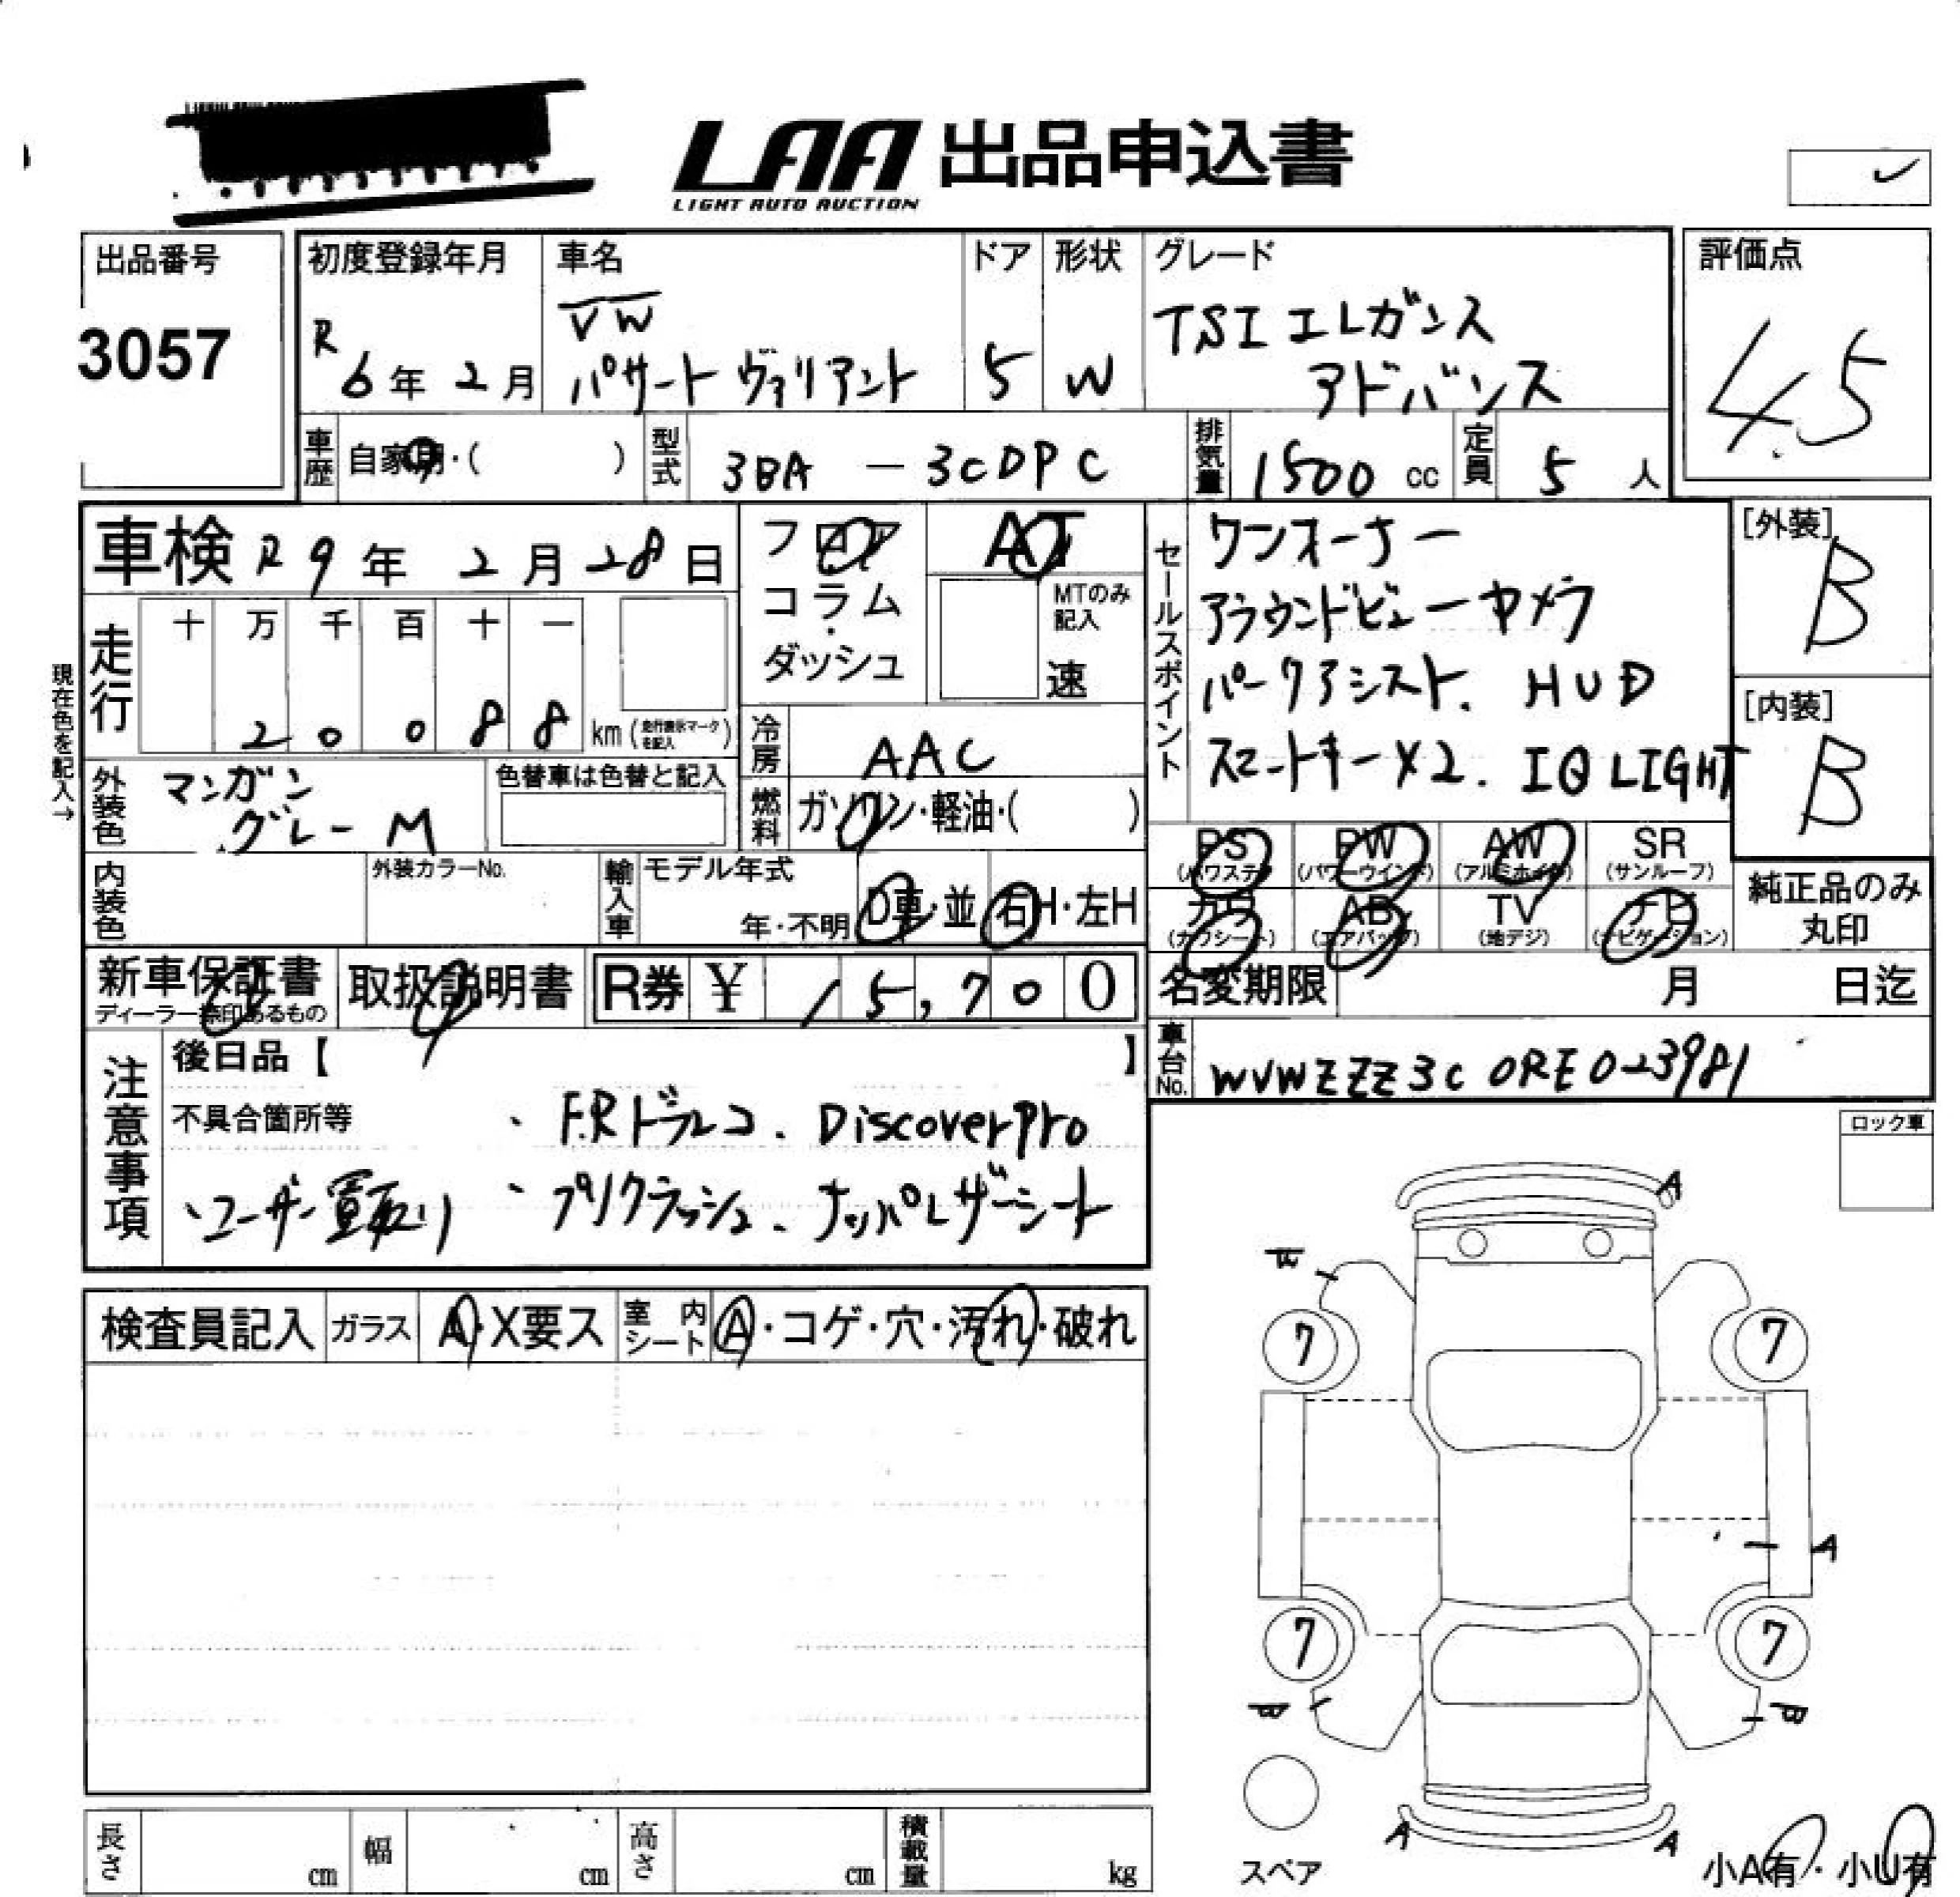 LAA 出品申込書
LIGHT AUTO AUCTION
出品番号
3057
初度登録年月
R
6年 2月
車名
VW
パサート ヴァリアント
ドア
5
形状
W
グレード
TSI エレガンス
アドバンス
評価点
4.5
車歴
自家用・( )
型式
3BA - 3CDPC
排気量
1500 cc
定員
5 人
車検 R9年 2月 28日
走行
十 万 千 百 十 一
2 0 0 8 8 km (走行表示マークを記入)
現在色を記入→
外装色
マンガン
グレーM
色替車は色替と記入
内装色
外装カラーNo.
フロア
コラム
・
ダッシュ
AT
MTのみ
記入
速
冷房
AAC
燃料
ガソリン・軽油・( )
輸入車
モデル年式
年・不明
D車・並
右H・左H
セールスポイント
ワンオーナー
アラウンドビューカメラ
パークアシスト. HUD
スマートキー×2. IQ LIGHT
[外装]
B
[内装]
B
PS
(パワステ)
PW
(パワーウインド)
AW
(アルミホイル)
SR
(サンルーフ)
カワ
(カワシート)
AB
(エアバッグ)
TV
(地デジ)
ナビ
(ナビゲーション)
純正品のみ
丸印
新車保証書
ディーラー捺印あるもの
取扱説明書
R券 ¥ 15,700
名変期限 月 日迄
車台No.
WVWZZZ3CORE023981
注意事項
後日品【 】
不具合箇所等
・F.Rドラレコ. Discover Pro
・ユーザー買取り
・プリクラッシュ. ナッパレザーシート
ロック車
検査員記入
ガラス
A・X要ス
室内
シート
A・コゲ・穴・汚れ・破れ
A
7
7
A
7
7
B
B
A
A
スペア
小A有・小U有
長さ
cm
幅
cm
高さ
cm
積載量
kg